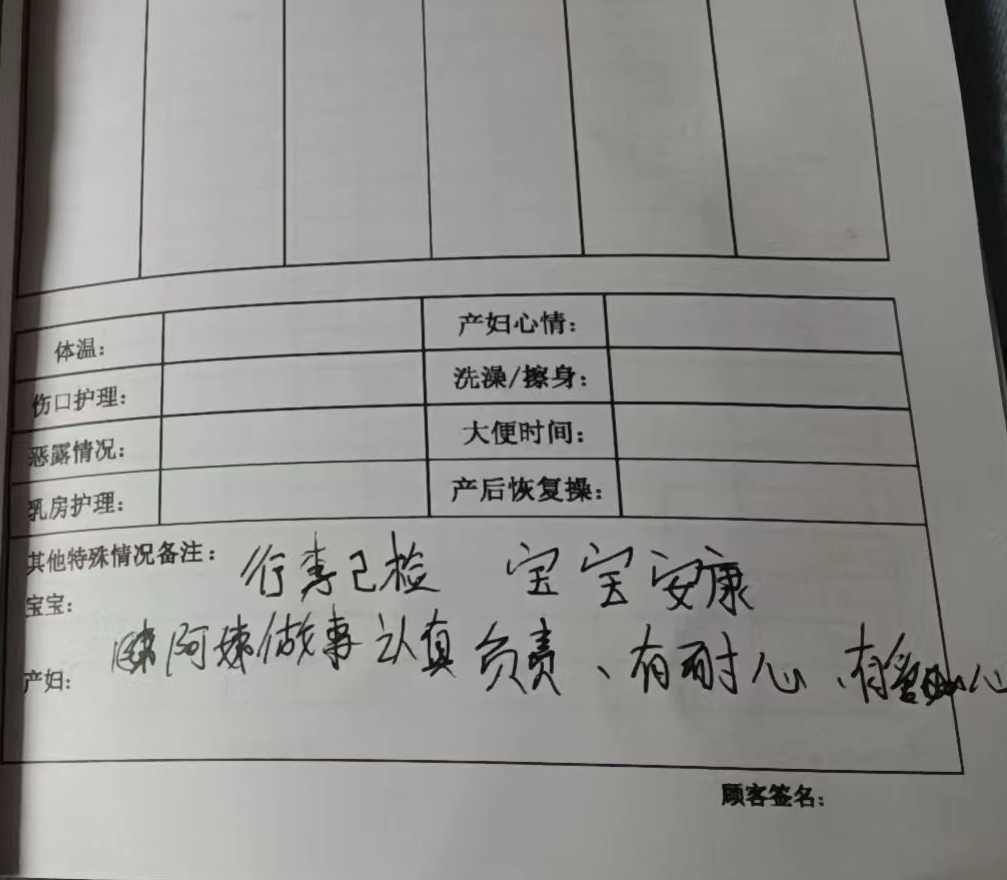 体温： 产妇心情：
伤口护理： 洗澡/擦身：
恶露情况： 大便时间：
乳房护理： 产后恢复操：
其他特殊情况备注：
行李已检 宝宝安康
宝宝：
阿姨做事认真负责、有耐心、有爱心
产妇：
顾客签名：